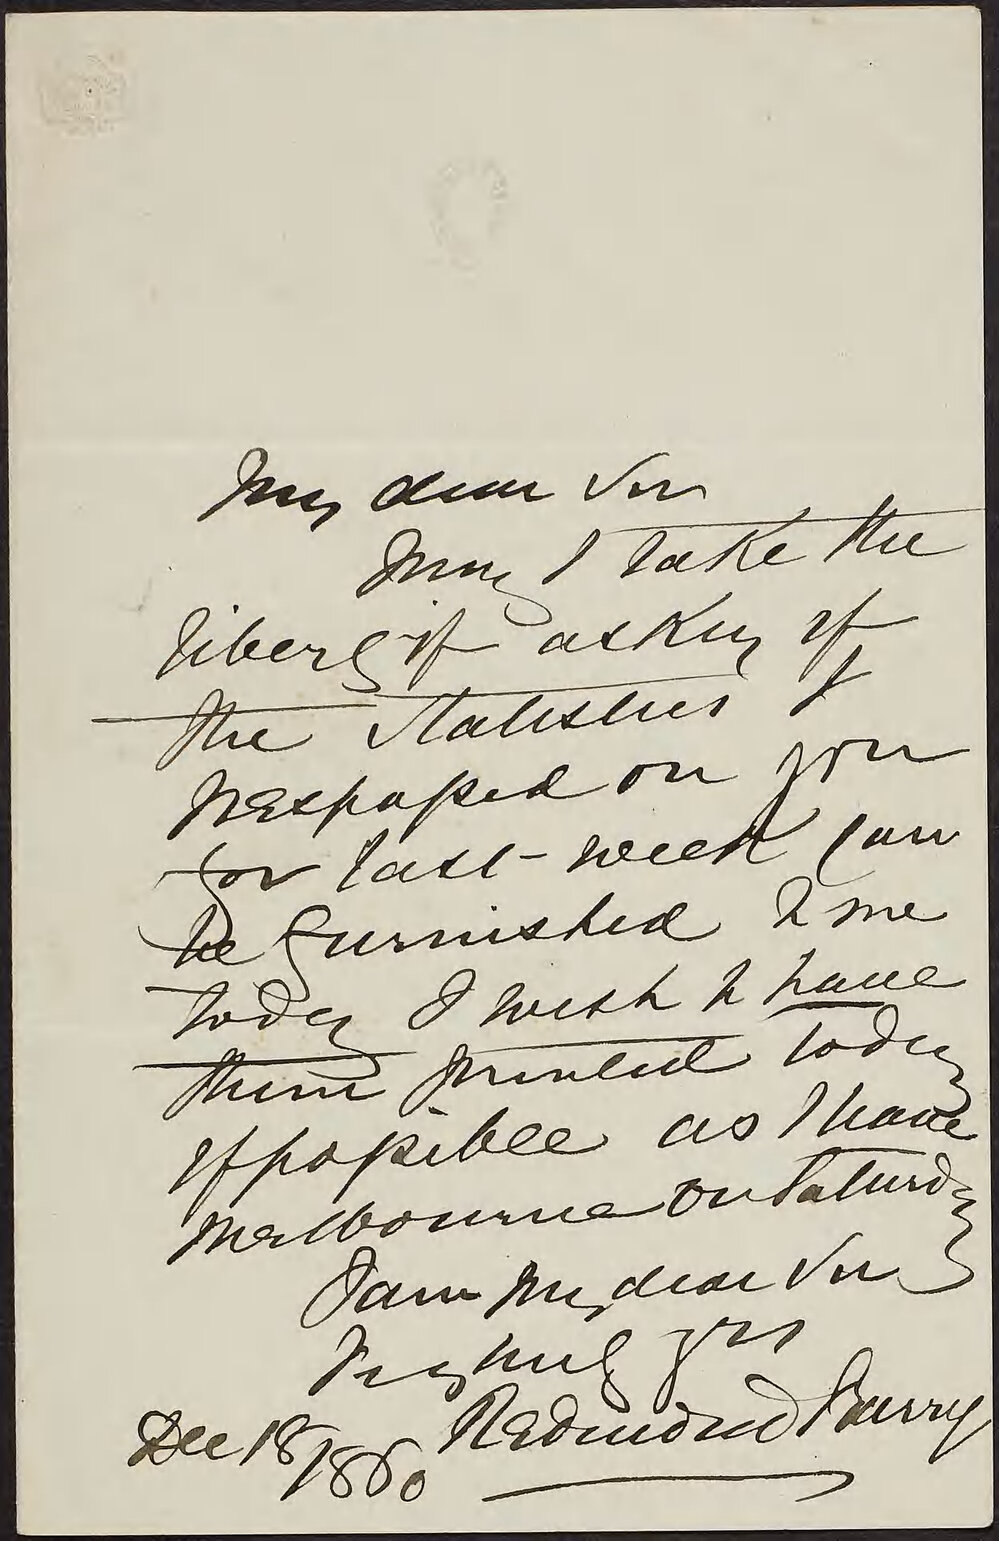 My dear Sir
May I take the
liberty of asking if
the Statistics of
on you
for last week can
be furnished to me
today I wish to have
them printed today
if possible as I leave
Melbourne on Saturday
I am My dear Sir
Very truly yrs
Dec 18/1860 Redmond Barry